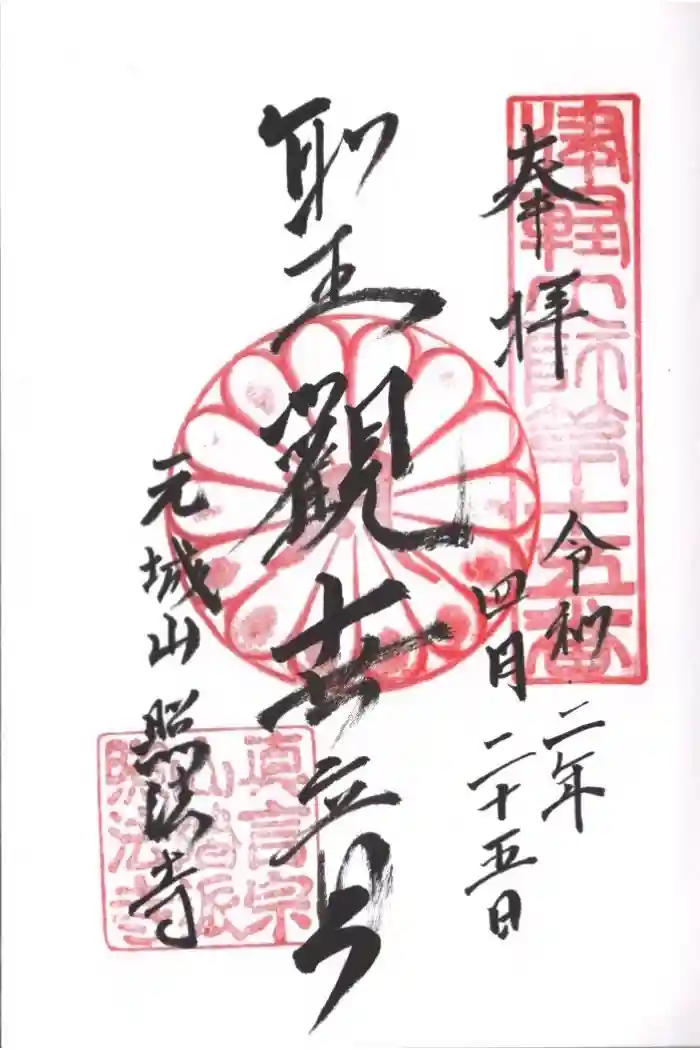 奉拝
令和二年
四月二十五日
聖觀世音
元城山 照法寺
真言宗
山階派
照法寺